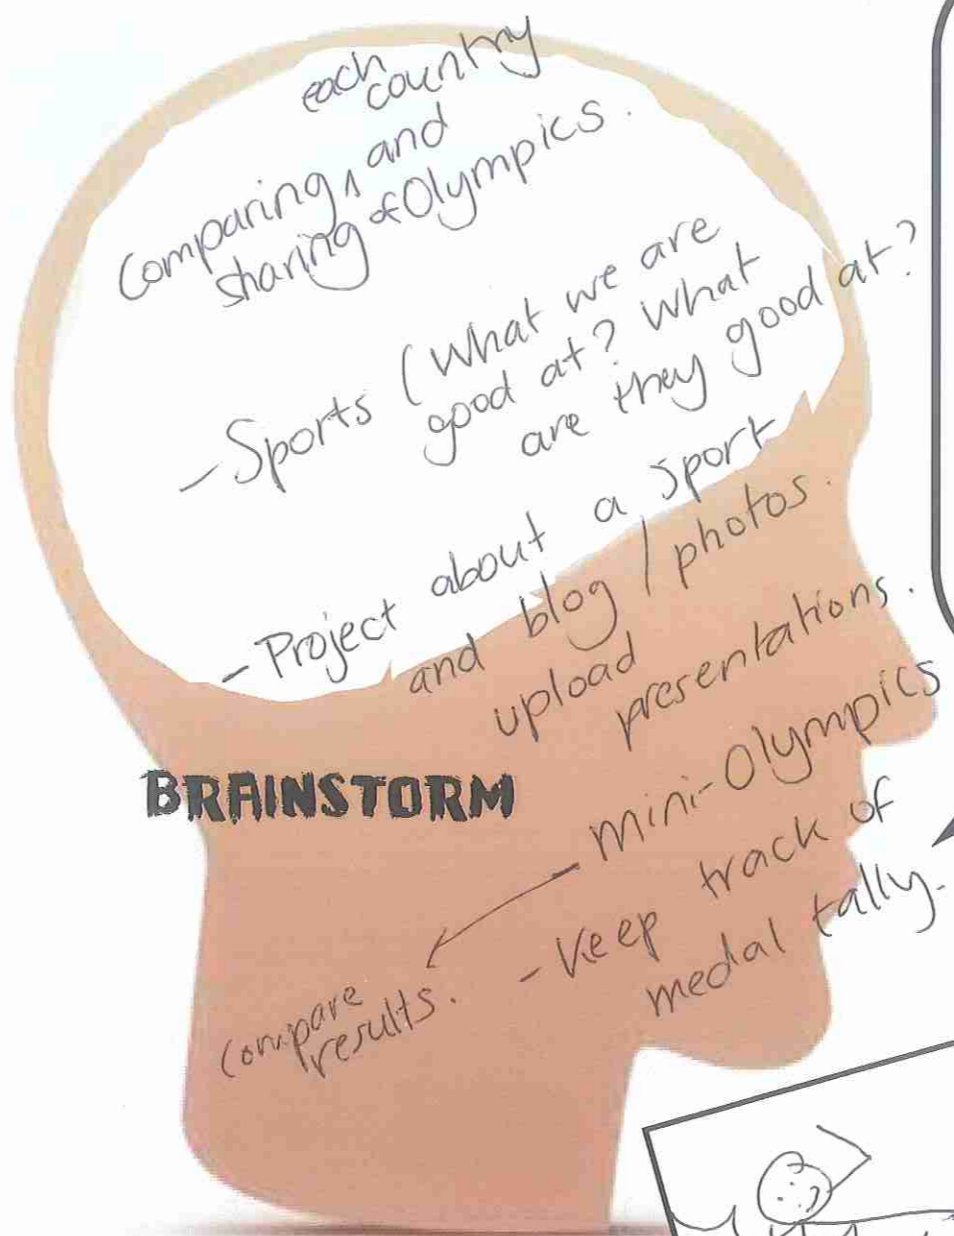 each
country
Comparing ^ and
sharing of Olympics.
- Sports (What we are
good at? What
are they good at?
- Project about a sport
and blog / photos.
upload
presentations.
BRAINSTORM
- mini-Olympics
compare
results.
- Keep track of
medal tally.